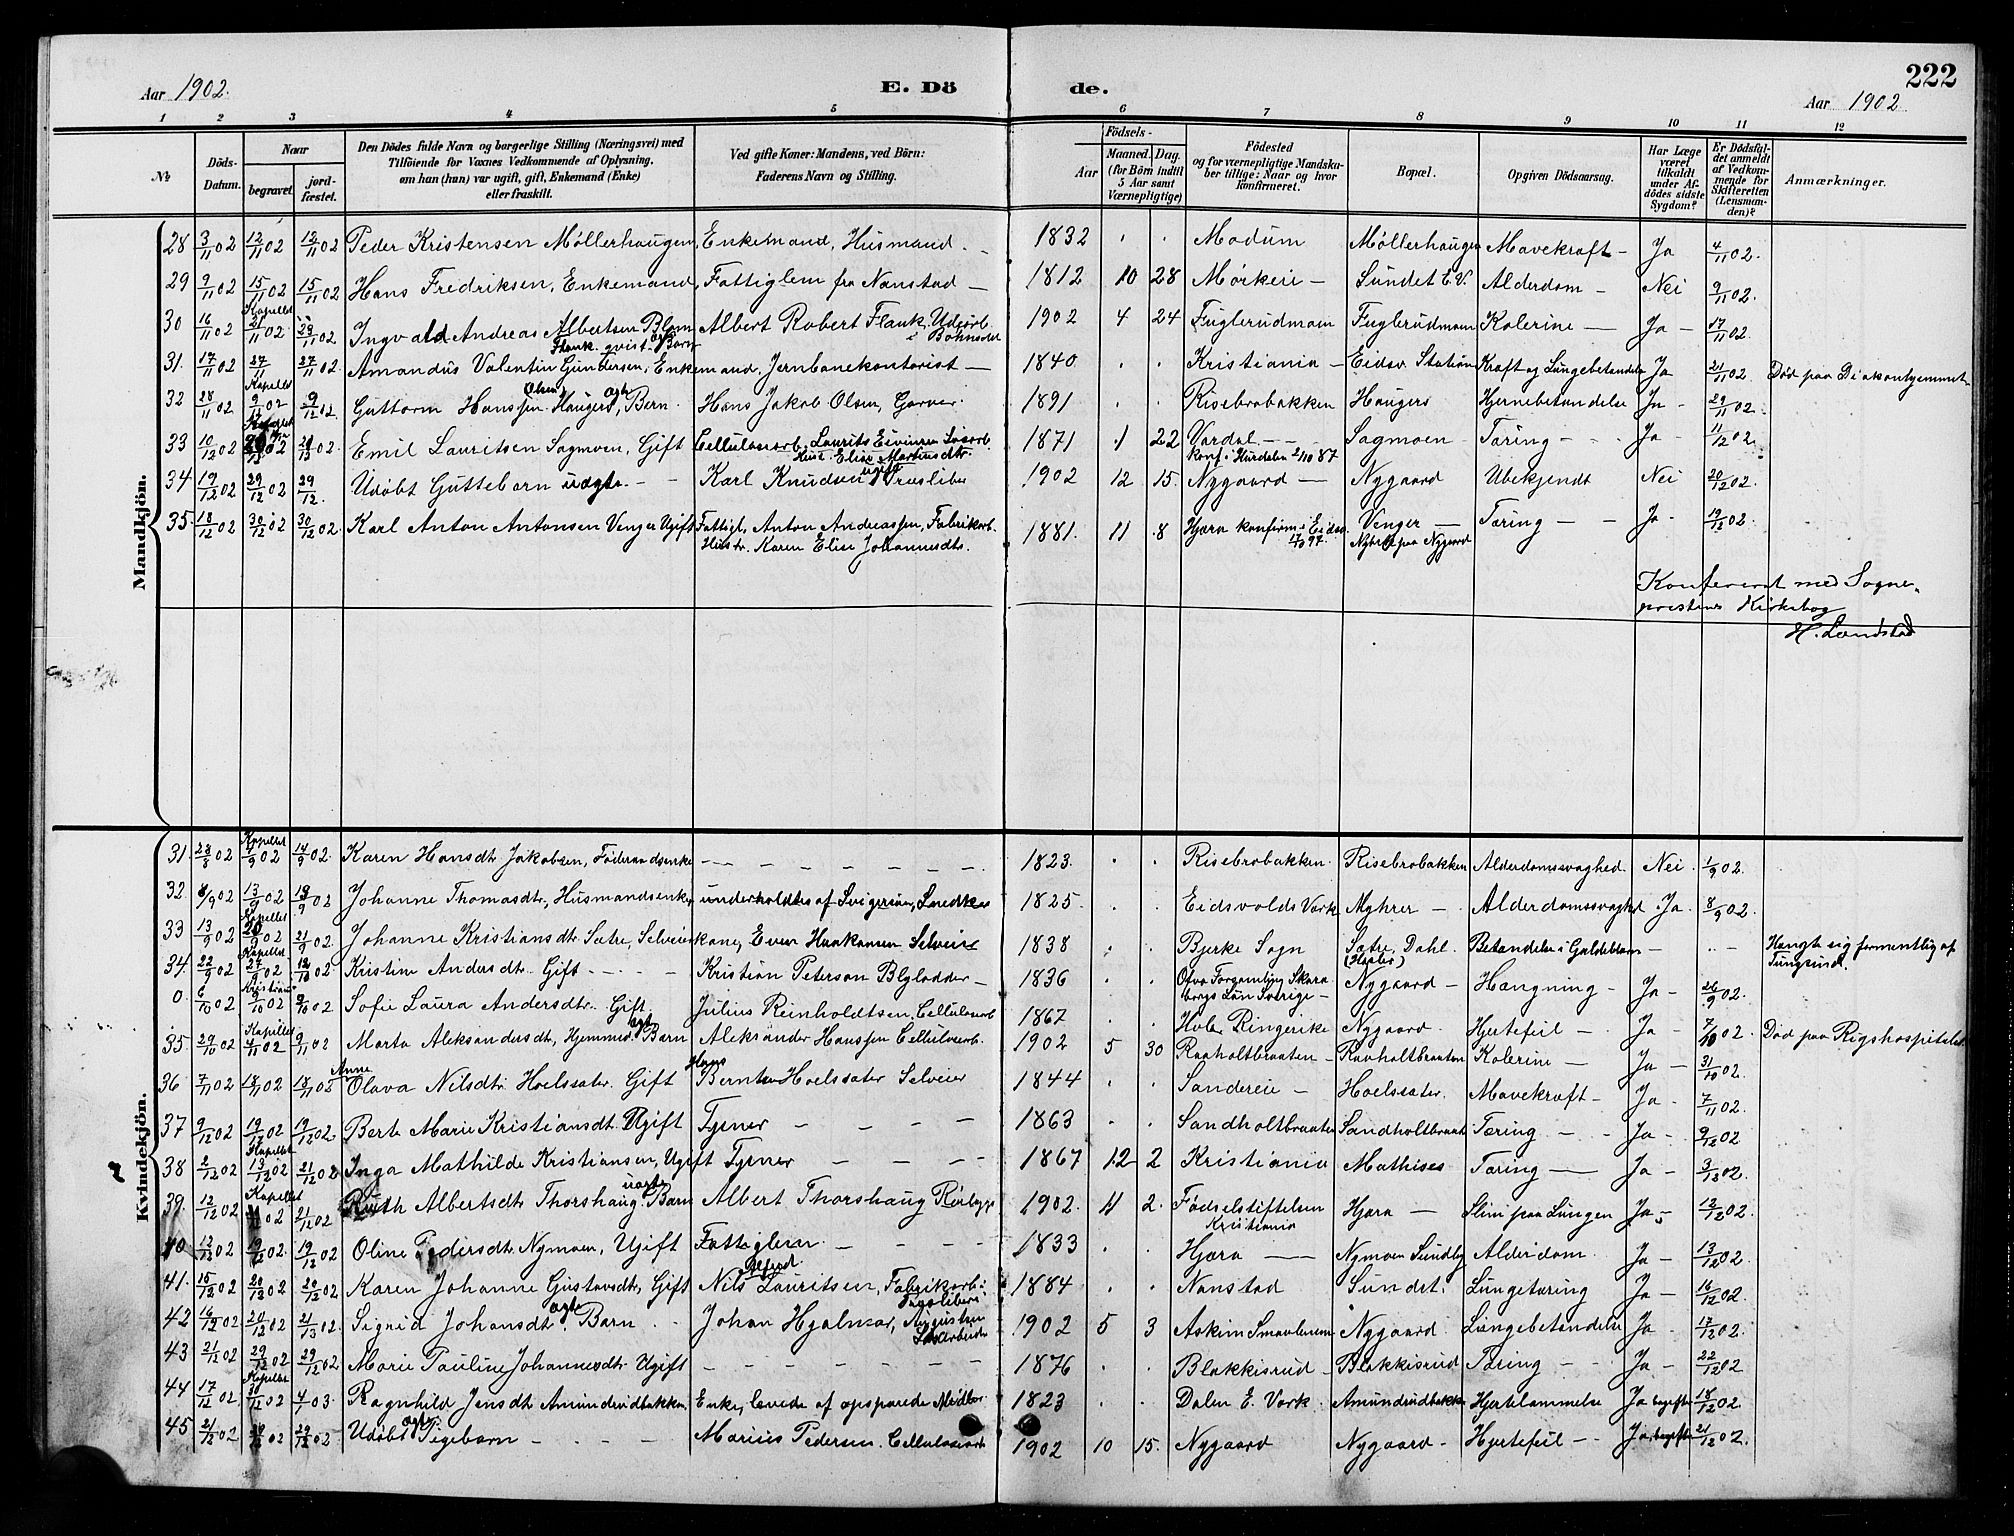 Aar 1902.
E. Dö de.
222
Aar 1902
1 2 3 4 5 6 7 8 9 10 11 12
№
Döds-Datum.
Naar
begravet.
jord-fæstet.
Den Dödes fulde Navn og borgerlige Stilling (Næringsvei) med
Tilföiende for Voxnes Vedkommende af Oplysning,
om han (hun) var ugift, gift, Enkemand (Enke)
eller fraskilt.
Ved gifte Koner: Mandens, ved Børn:
Faderens Navn og Stilling.
Födsels-
Aar
Maaned. Dag.
(for Börn indtil
5 Aar samt
Værnepligtige)
Födested
og for værnepligtige Mandska-
ber tillige: Naar og hvor
konfirmeret.
Bopæl.
Opgiven Dödsaarsag.
Har Læge
været
tilkaldt
under Af-
dödes sidste
Sygdom?
Er Dödsfal-
det anmeldt
af Vedkom-
mende for
Skifteretten
(Lensman-
den)?
Anmærkninger.
Mandkjön.
28 3/11 02 12/11 02 12/11 02 Peder Kristensen Møllerhaugen, Enkemand, Husmand. 1832 Modum Møllerhaugen Mavekræft Ja 4/11 02.
29 9/11 02 15/11 02 15/11 02 Hans Fredriksen, Enkemand, Fattiglem fra Nanstad 1812 10 28 Mørkeri Sundet E.V. Alderdom Nei 9/11 02.
30 16/11 02 Kapellet 21/11 02 02 Ingvald Andreas Albertsen Flank ægte Barn Albert Robert Flank, Udjorb. i Bohnsdal 1902 4 24 Fuglerudmoen Fuglerudmoen Kolerine Ja 17/11 02
31. 17/11 02 27/11 27/11 02. Amandus Valentin Gundersen, Enkemand, Jernbanekontorist 1840 Kristiania Eidsv. Station Kræft og Lungebetændelse Ja 21/11 02 Død paa Diakonhjemmet
32 28/11 02 Kapellet 9/12 02 9/12 12 Guttorm Hanssen Olsen Haugers, ægte Barn. Hans Jakob Olsen, Garver. 1891 Risebrobakken Haugers Hjernebetændelse Ja 29/11 02.
33 10/12 02 Kapellet 02 Emil Lauritsen Sagmoen, Gift Cellulosearb. Laurits Eivindsen Husr. Elise Martinsdtr. 1871 1 22 Vardal konf. i Hurdalen 2/10 87 Sagmoen Tæring Ja 11/12 02.
34 19/12 02 29/12 02 29/12. Udøbt Guttebarn uægte Karl Knudsen ugift Træsliber 1902 12 15. Nygaard Nygaard Ubekjendt Nei 20/12 02.
35. 18/12 02 30/12 02 30/12 02 Karl Anton Antonsen Venger Ugift Fattigl. Anton Andreassen, Fabrikarb. Hustr. Karen Elise Johannesdtr. 1881. 11 8 Hjæra konfirm. i Eidsv. 97. Venger paa Nygaard Tæring Ja 19/12 02.
Konfereret med Sogne-
prestens Kirkebog
H. Landstad
Kvindekjön.
31. 28/8 02 Kapellet 7/9 02 14/9 02. Karen Hansdtr Jakobsen, Føderaadsenke 1823. Risebrobakken Risebrobakken Alderdomssvaghed Nei 1/9 02.
32. 8/9 02 13/9 02 02 Johanne Thomasdtr, Husmandsenke underholdtes af Svigersøn, Snedker 1825 Eidsvolds Værk Myhrer Alderdomssvaghed Ja 8/9 02.
33 13/9 02 Kapellet 20/9 02 21/9 02. Johanne Kristiansdtr Sætre, Selveierkone, Even Haakonsen Selveier 1838 Bjerke Sogn Sætre, Dahl Betændelse i Galdeblæren Hængte sig formentlig af Tungsind.
34. 22/9 02 Kapellet 27/9 02 12/10 02 Kristine Andersdtr. Gift Kristian Peterson Blylodder 1836 Otva Forsamling Skaraborgs Län Sverige Nygaard Hængning Ja 26/9 02.
0 6/10 02 Kristiania 9/10 02 9/10 02 Sofie Laura Andersdtr. Gift Julius Reinholdtsen, Cellulosearb 1867 Hole Ringerike Nygaard Hjertefeil Ja 7/10 02 Død paa Rigshospitalet
35. 29/10 02 Kapellet 4/11 02 9/11 02 Marta Aleksandersdtr, Hjemmed. ægte Barn Aleksander Hanssen Cellulosearb. 1902 5 30 Raaholtbraaten Raaholtbraaten Kolerine Ja 31/10 02.
36 7/11 02 18/11 02 18/11 02 Anne Olava Nilsdtr. Hoelssæter. Gift Hans Berntsen Hoelssæter Selveier 1844 Sandereie Hoelssæter. Mavekræft Ja 7/11 02.
37 9/12 02 19/12 02 19/12 02. Berte Marie Kristiansdtr Ugift Tjener 1863 Sandholtbraaten Sandholtbraaten Tæring Ja 9/12 02
38 2/12 02 Kapellet 13/12 02 21/12 02 Inga Mathilde Kristiansen, Ugift Tjener 1867 12 2 Kristiania Mathises Tæring Ja 3/12 02.
39. 12/12 02 Kapellet 02 21/12 02 Ruth Albertsdtr Thorshaug uægte Barn Albert Thorshaug 1902. 11 2. Fødselstiftelsen Kristiania Hjæra Slim paa Lungen Ja 12/12 02.
40 12/12 02 19/12 02. 19/12 02 Oline Pedersdtr Nymoen, Ugift Fattiglem 1833 Hjæra Nymoen Sundby Alderdom. Ja 13/12 02.
41. 15/12 02 20/12 02 20/12 02 Karen Johanne Gustavsdtr, Gift Nils Alfred Lauritsen, Fabrikarb. Træsliberi 1884 Nanstad Sundet. Lungetæring Ja 16/12 02.
42 16/12 02 20/12 02 21/12 02. Sigrid Johansdtr. ægte Barn Johan Hjalmar Augustsen 1902 5 3 Askim Smaalenene Nygaard Lungebetændelse Ja 17/12 02.
43 21/12 02 29/12 02 29/12 02 Marie Pauline Johannesdtr Ugift 1876 Blakkisrud Blakkisrud Tæring Ja 22/12 02
44 17/12 02 Kapellet 30/12 02 4/1 03. Ragnhild Jensdtr Amundrudbakken, Enke, levede af opsparede Midler 1823 Dalen E. Værk Amundrudbakken Hjertelammelse Ja begyftn 18/12 02.
45 21/12 02 29/12 02 29/12 02. Udøbt ægte Pigebarn Marius Pedersen, Cellulosearb 1902 10 15. Nygaard Nygaard Hjertefeil Ja 21/12 02.